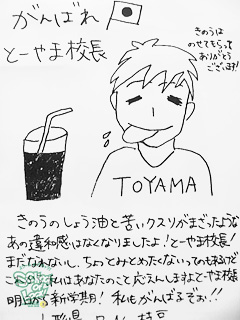 がんばれ
とーやま校長
きのうは
のせてもらって
ありがとう
ございます!
TOYAMA
きのうのしょう油と苦いクスリがまざったような
あの違和感はなくなりましたよ!とーやま校長!
まだなれないし、ちょっとみとめたくないっての
私はあなたのこと応えんしますよとーやま校長
明日から新学期! 私もがんばるぞぉ!!